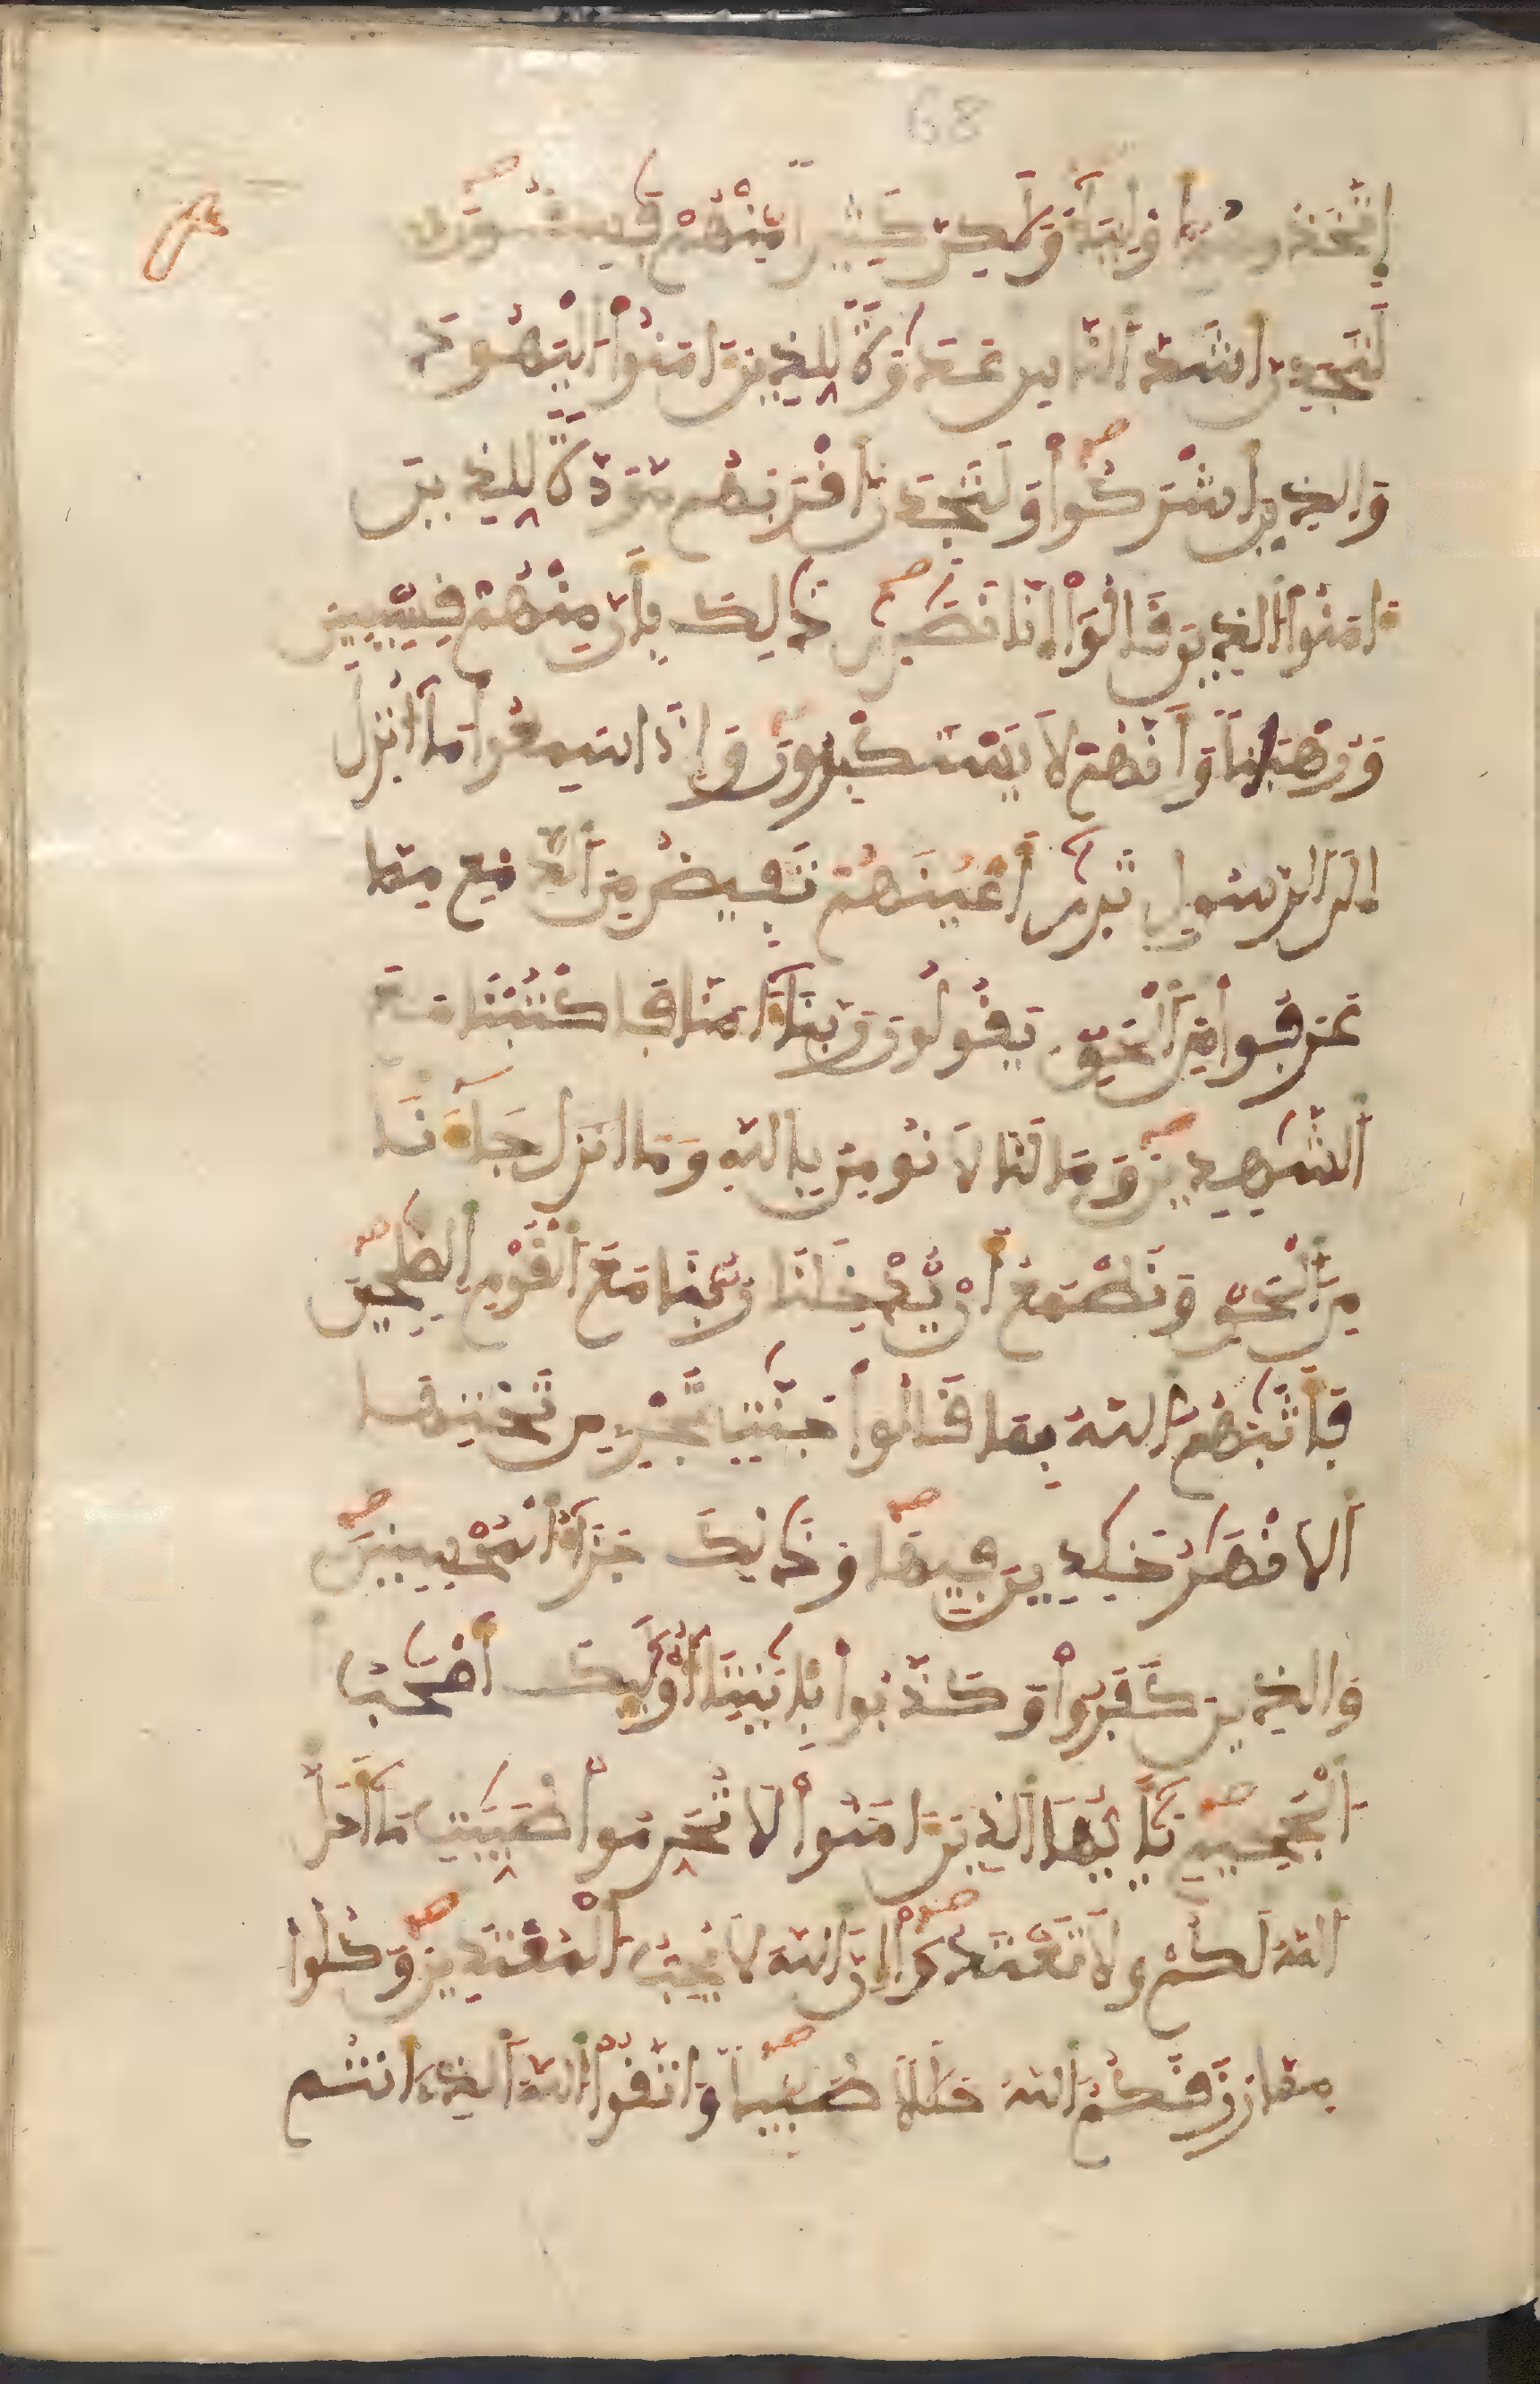 68
اتخذوهم أولياء ولكن كثيرا منهم فسقون
لتجدن أشد الناس عداوة للذين ءامنوا اليهود
والذين أشركوا ولتجدن أقربهم مودة للذين
ءامنوا الذين قالوا إنا نصرى ذلك بأن منهم قسيسين
ورهبانا وأنهم لا يستكبرون وإذا سمعوا ما أنزل
إلى الرسول ترى أعينهم تفيض من الدمع مما
عرفوا من الحق يقولون ربنا ءامنا فاكتبنا مع
الشهدين وما لنا لا نومن بالله وما جاءنا
من الحق ونطمع أن يدخلنا ربنا مع القوم الصلحين
فأثبهم الله بما قالوا جنت تجري من تحتها
الانهر خلدين فيها وذلك جزاء المحسنين
والذين كفروا وكذبوا بئايتنا أولئك أصحب
الجحيم يأيها الذين ءامنوا لا تحرموا طيبت ما أحل
الله لكم ولا تعتدوا إن الله لا يحب المعتدين وكلوا
مما رزقكم الله حللا طيبا واتقوا الله الذي أنتم